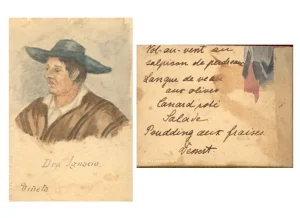 Don Ignacio
Vol-au-vent au
salpicon de perdreau
Langue de veau
aux olives
Canard roti
Salade
Poudding aux fraises
Dessert.